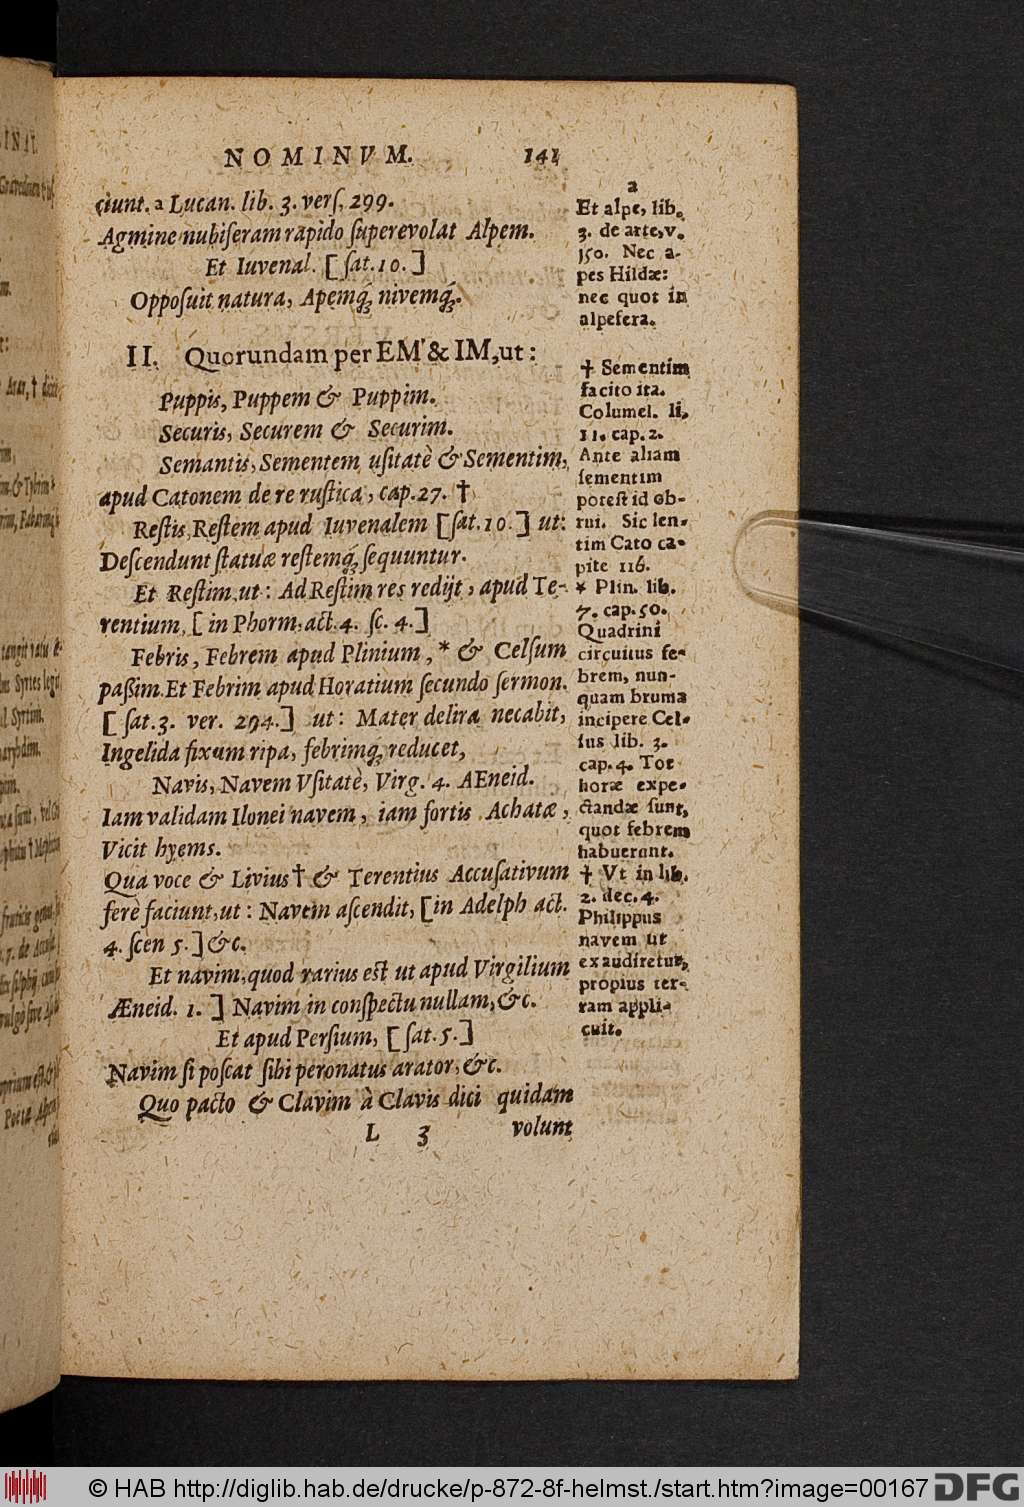 NOMINVM. 141
ciunt. a Lucan. lib. 3. verſ. 299.
Agmine nubiferam rapido ſuperevolat Alpem.
Et Iuvenal. [ ſat. 10. ]
Oppoſuit natura, Apemq́; nivemq́;.
II. Quorundam per EM & IM, ut:
Puppis, Puppem & Puppim.
Securis, Securem & Securim.
Semantis, Sementem uſitatè & Sementim,
apud Catonem de re ruſtica, cap. 27. †
Reſtis, Reſtem apud Iuvenalem [ ſat. 10. ] ut:
Deſcendunt ſtatuæ reſtemq́; ſequuntur.
Et Reſtim, ut: Ad Reſtim res redijt, apud Te-
rentium, [ in Phorm. act. 4. ſc. 4. ]
Febris, Febrem apud Plinium, * & Celſum
paßim. Et Febrim apud Horatium ſecundo ſermon.
[ ſat. 3. ver. 294. ] ut: Mater delira necabit,
In gelida fixum ripa, febrimq́; reducet,
Navis, Navem Vſitatè, Virg. 4. AEneid.
Iam validam Ilonei navem, iam fortis Achatæ,
Vicit hyems.
Qua voce & Livius † & Terentius Accuſativum
ferè faciunt, ut: Navem aſcendit, [ in Adelph act.
4. ſcen 5. ] &c.
Et navim, quod rarius eſt ut apud Virgilium
Æneid. 1. ] Navim in conſpectu nullam, &c.
Et apud Perſium, [ ſat. 5. ]
Navim ſi poſcat ſibi peronatus arator, &c.
Quo pacto & Clavim à Clavis dici quidam
L 3 volunt
a
Et alpe, lib.
3. de arte, v.
150. Nec a-
pes Hildæ:
nec quot in
alpefera.
† Sementim
facito ita.
Columel. li.
11. cap. 2.
Ante aliam
ſementim
poteſt id ob-
rui. Sic len-
tim Cato ca-
pite 116.
* Plin. lib.
7. cap. 50.
Quadrini
circuitus fe-
brem, nun-
quam bruma
incipere Cel-
ſus lib. 3.
cap. 4. Tot
horæ expe-
ctandæ ſunt,
quot febrem
habuerunt.
† Vt in lib.
2. dec. 4.
Philippus
navem ut
exaudiretur,
propius ter-
ram appli-
cuit.
© HAB http://diglib.hab.de/drucke/p-872-8f-helmst./start.htm?image=00167
DFG